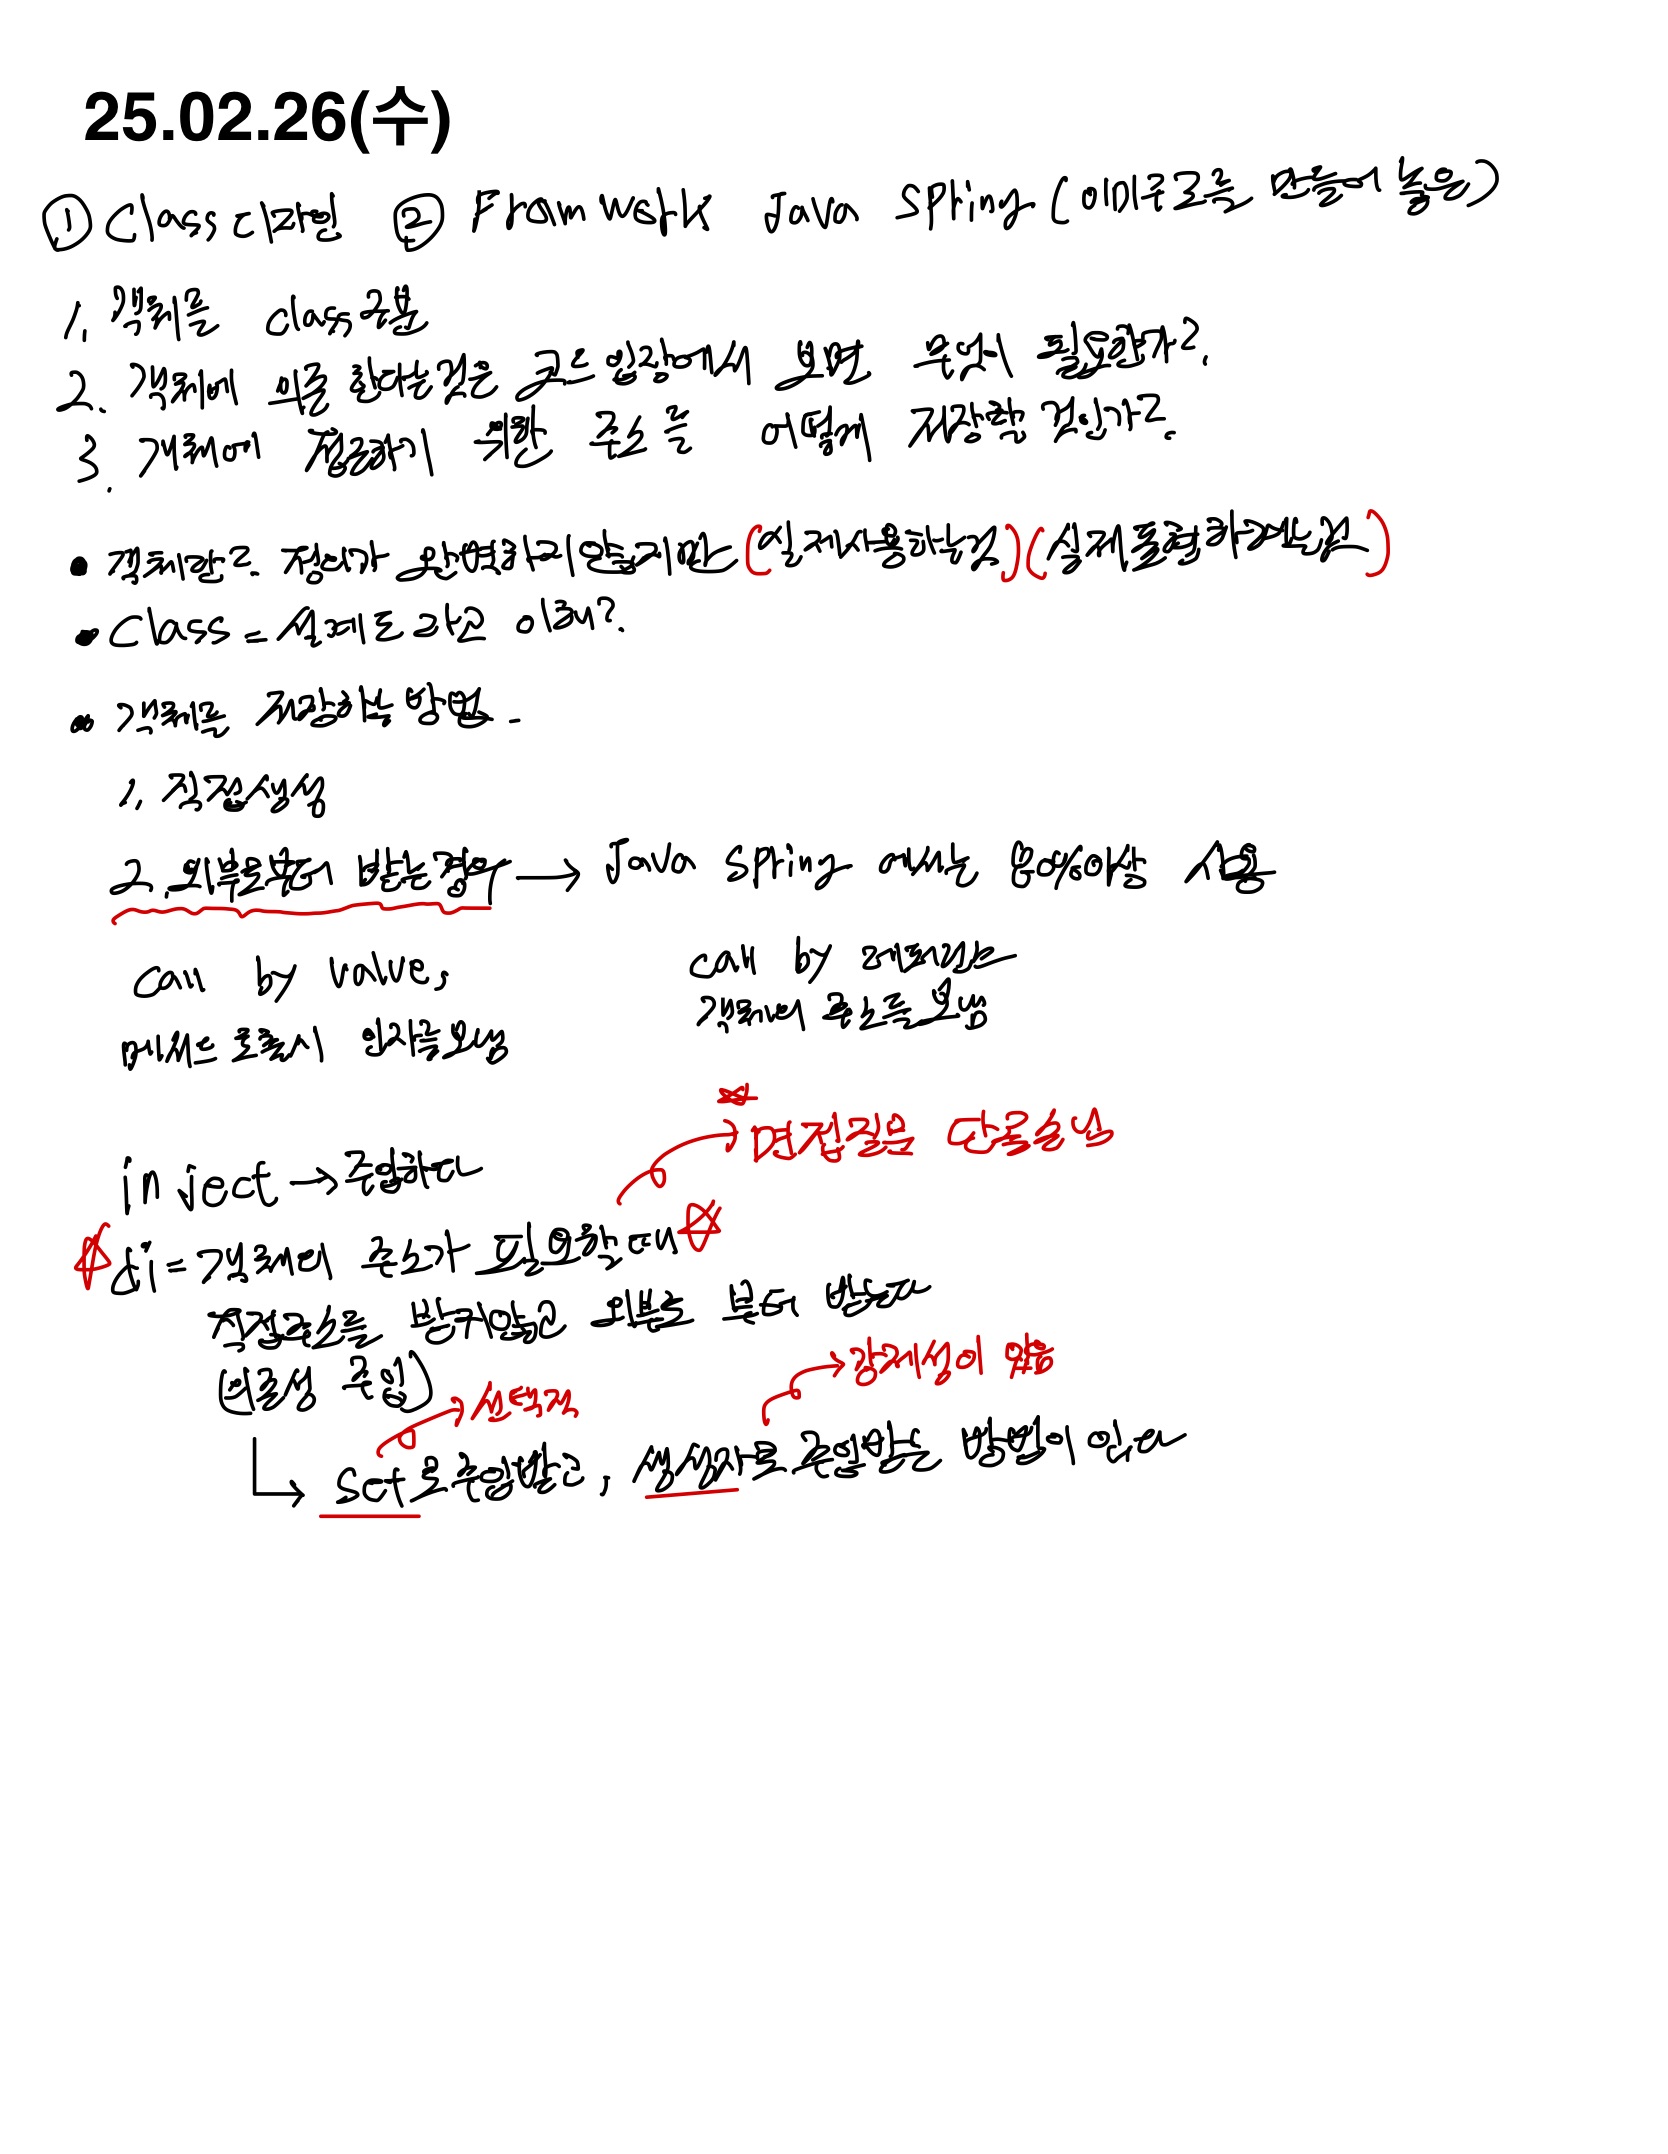 25.02.26(수)
① Class 디자인 ② Framwork Java Spring (이미 구조를 만들어 놓은)
1. 객체를 class 구분
2. 객체에 의존 한다는것은 코드 입장에서 보면 무엇이 필요한가?
3. 객체에 접근하기 위한 주소를 어떻게 저장할 것인가?
• 객체란? 정의가 완벽하지않습지만 (실제사용하는것) (실제 표현하려는것)
• Class = 설계도 라고 이해?
• 객체를 저장하는 방법.
1. 직접생성
2. 외부로부터 받는경우 → Java Spring 에서는 80%이상 사용
call by value, call by 레퍼런스
메서드 호출시 인자를 보냄 객체의 주소를 보냄
★ 면접질문 단골손님
inject → 주입하다
☆ di = 객체의 주소가 필요할때 ☆
직접주소를 받지않고 외부로 부터 받는다
(의존성 주입)
→ 선택적 → 강제성이 있음
↳ set으로 주입받고, 생성자로 주입받는 방법이 있다